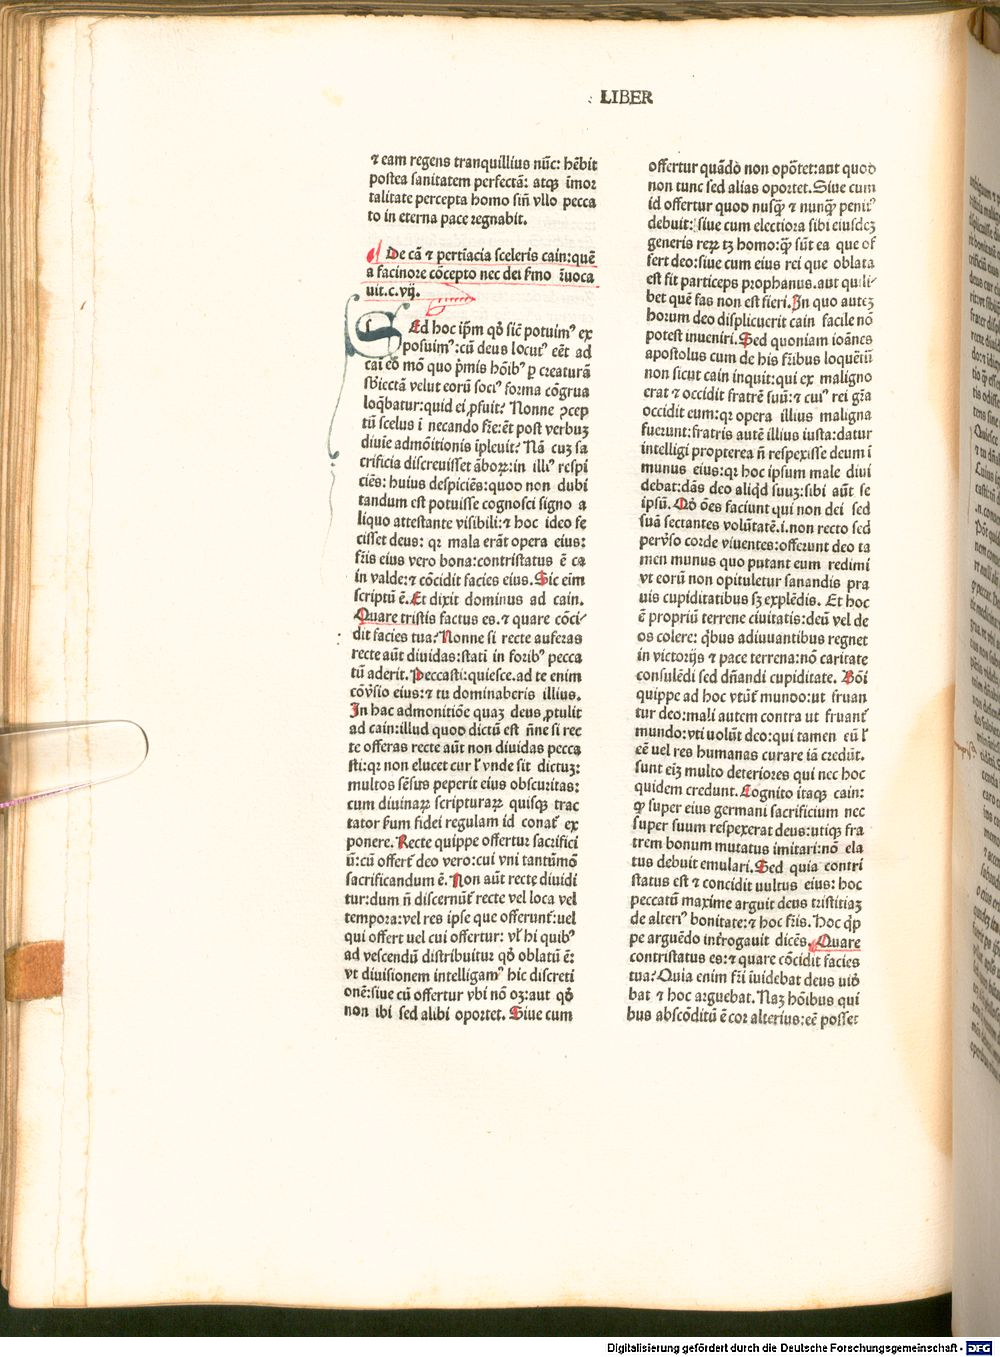 LIBER
⁊ eam regens tranquillius nūc: hēbit
postea sanitatem perfectā: atqꝫ īmor
talitate percepta homo siñ vllo pecca
to in eterna pace regnabit.
De cā ⁊ pertīacia sceleris cain: quē
a facinore cōcepto nec dei ſmo r̄uoca
uit. c. vij.
SEd hoc ip̄m qđ sic̄ potuimꝰ ex
posuimꝰ: cū deus locutꝰ eēt ad
cain eo mō quo p̄mis hōibꝰ ꝑ creaturā
sb̄iectā velut eorū sociꝰ forma cōgrua
loq̄batur: quid ei ꝓfuit? Nonne ꝯcep
tū scelus ī necando fr̄e: ēt post verbuꝫ
diuīe admōitionis īpleuit? Nā cuꝫ sa
crificia discreuisset āboꝝ: in illiꝰ respi
ciēs: huius despiciēs: quod non dubi
tandum est potuisse cognosci signo a
liquo attestante visibili: ⁊ hoc ideo fe
cisset deus: qꝛ mala erāt opera eius:
fr̄is eius vero bona: contristatus ē ca
in valde: ⁊ cōcidit facies eius. Sic eim
scriptū ē. Et dixit dominus ad cain.
Quare tristis factus es. ⁊ quare cōci
dit facies tua? Nonne si recte auferas
recte aūt diuidas: stati in foribꝰ pecca
tū aderit. Peccasti: quiesce. ad te enim
cōv̄sio eius: ⁊ tu dominaberis illius.
In hac admonitiōe quaꝫ deus ꝓtulit
ad cain: illud quod dictū est ñne si rec
te offeras recte aūt non diuidas pecca
sti: qꝛ non elucet cur ł vnde sit dictuꝫ:
multos sēsus peperit eius obscuritas:
cum diuinaꝝ scripturaꝝ quisqꝫ trac
tator ẜum fidei regulam id conat̄ ex
ponere. Recte quippe offertur sacrifici
ū: cū offert̄ deo vero: cui vni tantūmō
sacrificandum ē. Non aūt recte diuidi
tur: dum ñ discernūt̄ recte vel loca vel
tempora: vel res ipse que offerunt̄: uel
qui offert uel cui offertur: vł hi quibꝰ
ad vescendū distribuitur qđ oblatū ē:
vt diuisionem intelligamꝰ hic discreti
onē: siue cū offertur vbi nō oꝫ: aut qđ
non ibi sed alibi oportet. Siue cum
offertur quādo non opōtet: aut quod
non tunc sed alias oportet. Siue cum
id offertur quod nusq̄ꝫ ⁊ nunq̄ꝫ penitꝰ
debuit: siue cum electiora sibi eiusdeꝫ
generis reꝝ tꝫ homo: q̄ꝫ sūt ea que of
fert deo: siue cum eius rei que oblata
est fit particeps prophanus. aut quili
bet quē fas non est fieri. In quo auteꝫ
horum deo displicuerit cain facile nō
potest inueniri. Sed quoniam ioānes
apostolus cum de his fr̄ibus loquēt̄
non sicut cain inquit: qui ex maligno
erat ⁊ occidit fratrē suū: ⁊ cuiꝰ rei gr̄a
occidit eum: qꝛ opera illius maligna
fuerunt: fratris autē illius iusta: datur
intelligi propterea ñ respexisse deum ī
munus eius: qꝛ hoc ipsum male diui
debat: dās deo aliqd̄ suuꝫ: sibi aūt se
ipsū. Qđ ōes faciunt qui non dei sed
suā sectantes volūtatē. i. non recto sed
perv̄so corde viuentes: offerunt deo ta
men munus quo putant eum redimi
vt eorū non opituletur sanandis pra
uis cupiditatibus sꝫ explēdis. Et hoc
ē propriū terrene ciuitatis: deū vel de
os colere: qb̄us adiuuantibus regnet
in victorijs ⁊ pace terrena: nō caritate
consulēdi sed dn̄andi cupiditate. Bōi
quippe ad hoc vtūt̄ mundo: ut fruan
tur deo: mali autem contra ut fruant̄
mundo: vti uolūt deo: qui tamen eū ł
eē uel res humanas curare iā credūt.
sunt eīꝫ multo deteriores qui nec hoc
quidem credunt. Cognito itaqꝫ cain:
qꝫ super eius germani sacrificium nec
super suum respexerat deus: utiqꝫ fra
trem bonum mutatus imitari: nō ela
tus debuit emulari. Sed quia contri
status est ⁊ concidit uultus eius: hoc
peccatū maxime arguit deus tristitiaꝫ
de alteriꝰ bonitate: ⁊ hoc fr̄is. Hoc q̄p
pe arguēdo int̄rogauit dicēs. Quare
contristatus es: ⁊ quare cōcidit facies
tua? Quia enim fr̄i īuidebat deus uidē
bat ⁊ hoc arguebat. Naꝫ hōibus qui
bus abscōditū ē cor alterius: eē posset
Digitalisierung gefördert durch die Deutsche Forschungsgemeinschaft - DFG